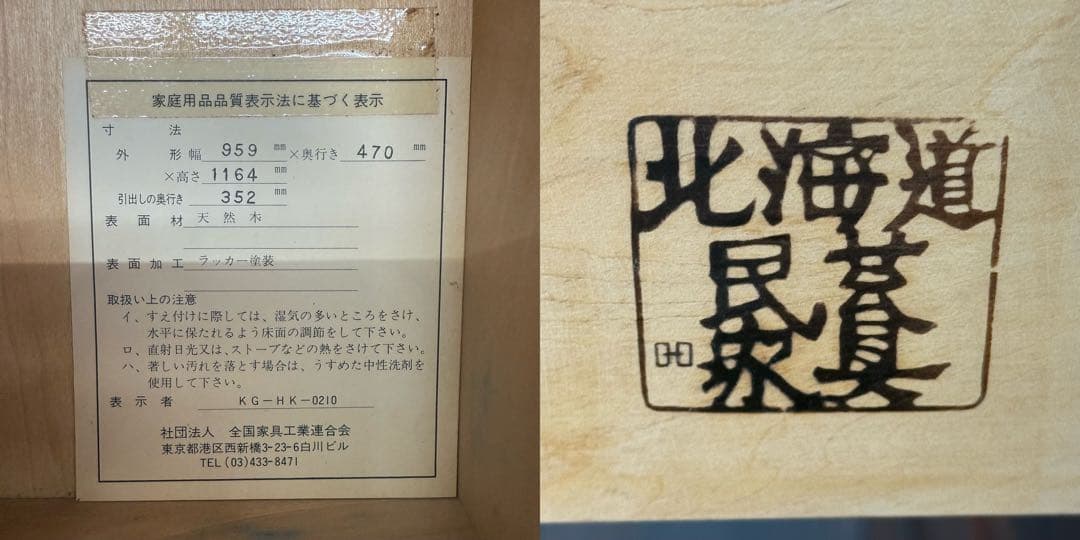 家庭用品品質表示法に基づく表示
寸法
外形幅 959 mm ×奥行き 470 mm
×高さ 1164 mm
引出しの奥行き 352 mm
表面材 天然木
表面加工 ラッカー塗装
取扱い上の注意
イ、すえ付けに際しては、湿気の多いところをさけ、
水平に保たれるよう床面の調節をして下さい。
ロ、直射日光又は、ストーブなどの熱をさけて下さい。
ハ、著しい汚れを落とす場合は、うすめた中性洗剤を
使用して下さい。
表示者 KG-HK-0210
社団法人 全国家具工業連合会
東京都港区西新橋3-23-6白川ビル
TEL (03)433-8471
北海道
民芸
家具